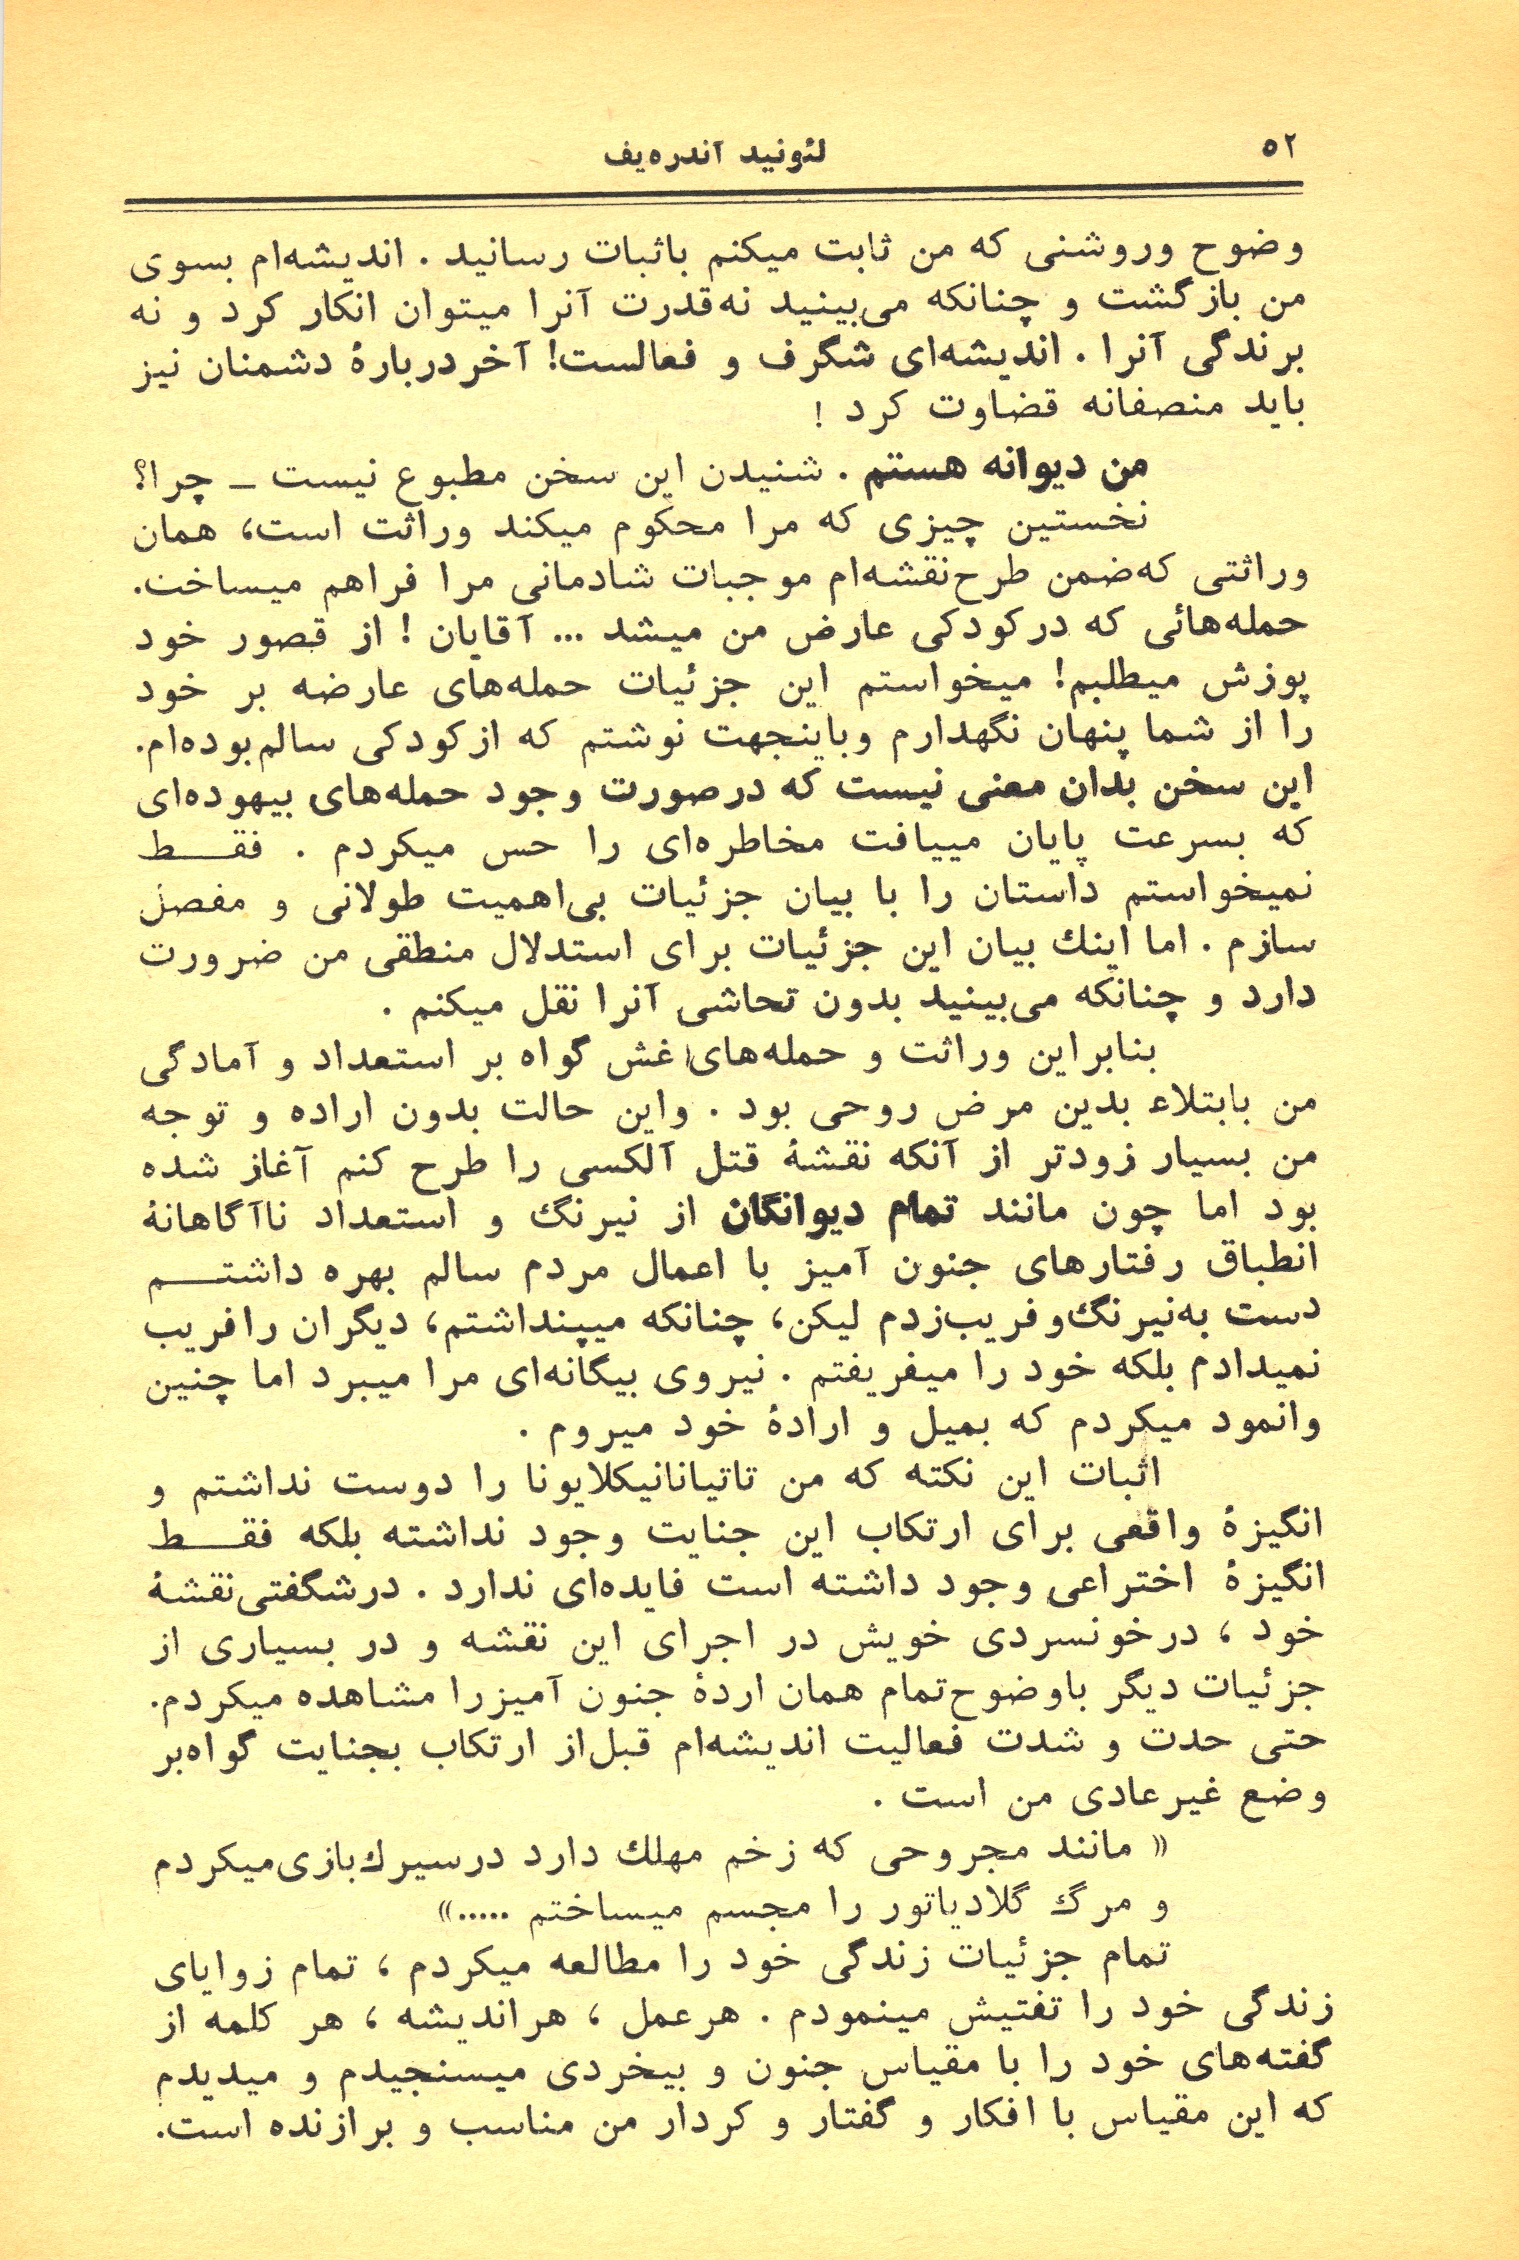 ۵۲
لئونید آندره‌یف
وضوح وروشنی که من ثابت میکنم باثبات رسانید . اندیشه‌ام بسوی
من بازگشت و چنانکه می‌بینید نه‌قدرت آنرا میتوان انکار کرد و نه
برندگی آنرا . اندیشه‌ای شگرف و فعالست! آخر دربارهٔ دشمنان نیز
باید منصفانه قضاوت کرد !
من دیوانه هستم . شنیدن این سخن مطبوع نیست ـ چرا؟
نخستین چیزی که مرا محکوم میکند وراثت است، همان
وراثتی که‌ضمن طرح‌نقشه‌ام موجبات شادمانی مرا فراهم میساخت.
حمله‌هائی که درکودکی عارض من میشد ... آقایان ! از قصور خود
پوزش میطلبم! میخواستم این جزئیات حمله‌های عارضه بر خود
را از شما پنهان نگهدارم وباینجهت نوشتم که ازکودکی سالم‌بوده‌ام.
این سخن بدان معنی نیست که درصورت وجود حمله‌های بیهوده‌ای
که بسرعت پایان مییافت مخاطره‌ای را حس میکردم . فقـــط
نمیخواستم داستان را با بیان جزئیات بی‌اهمیت طولانی و مفصل
سازم . اما اینك بیان این جزئیات برای استدلال منطقی من ضرورت
دارد و چنانکه می‌بینید بدون تحاشی آنرا نقل میکنم .
بنابراین وراثت و حمله‌های غش گواه بر استعداد و آمادگی
من بابتلاء بدین مرض روحی بود . واین حالت بدون اراده و توجه
من بسیار زودتر از آنکه نقشهٔ قتل آلکسی را طرح کنم آغاز شده
بود اما چون مانند تمام دیوانگان از نیرنگ و استعداد ناآگاهانهٔ
انطباق رفتارهای جنون آمیز با اعمال مردم سالم بهره داشتـــم
دست به‌نیرنگ‌وفریب‌زدم لیکن، چنانکه میپنداشتم، دیگران رافریب
نمیدادم بلکه خود را میفریفتم . نیروی بیگانه‌ای مرا میبرد اما چنین
وانمود میکردم که بمیل و ارادهٔ خود میروم .
اثبات این نکته که من تاتیانانیکلایونا را دوست نداشتم و
انگیزهٔ واقعی برای ارتکاب این جنایت وجود نداشته بلکه فقـــط
انگیزهٔ اختراعی وجود داشته است فایده‌ای ندارد . درشگفتی‌نقشهٔ
خود ، درخونسردی خویش در اجرای این نقشه و در بسیاری از
جزئیات دیگر باوضوح‌تمام همان اردهٔ جنون آمیزرا مشاهده میکردم.
حتی حدت و شدت فعالیت اندیشه‌ام قبل‌از ارتکاب بجنایت گواه‌بر
وضع غیرعادی من است .
« مانند مجروحی که زخم مهلك دارد درسیرك‌بازی‌میکردم
و مرگ گلادیاتور را مجسم میساختم .....»
تمام جزئیات زندگی خود را مطالعه میکردم ، تمام زوایای
زندگی خود را تفتیش مینمودم . هرعمل ، هراندیشه ، هر کلمه از
گفته‌های خود را با مقیاس جنون و بیخردی میسنجیدم و میدیدم
که این مقیاس با افکار و گفتار و کردار من مناسب و برازنده است.